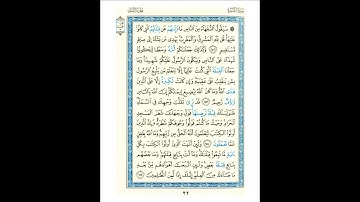 سَيَقُولُ السُّفَهَاءُ مِنَ النَّاسِ مَا وَلَّىٰهُمْ عَن قِبْلَتِهِمُ الَّتِي كَانُوا
عَلَيْهَا قُل لِّلَّهِ الْمَشْرِقُ وَالْمَغْرِبُ يَهْدِي مَن يَشَاءُ إِلَىٰ صِرَٰطٍ
مُّسْتَقِيمٍ ١٤٢ وَكَذَٰلِكَ جَعَلْنَٰكُمْ أُمَّةً وَسَطًا لِّتَكُونُوا
شُهَدَاءَ عَلَى النَّاسِ وَيَكُونَ الرَّسُولُ عَلَيْكُمْ شَهِيدًا وَمَا
جَعَلْنَا الْقِبْلَةَ الَّتِي كُنتَ عَلَيْهَا إِلَّا لِنَعْلَمَ مَن يَتَّبِعُ الرَّسُولَ
مِمَّن يَنقَلِبُ عَلَىٰ عَقِبَيْهِ وَإِن كَانَتْ لَكَبِيرَةً إِلَّا عَلَى الَّذِينَ
هَدَى اللَّهُ وَمَا كَانَ اللَّهُ لِيُضِيعَ إِيمَٰنَكُمْ إِنَّ اللَّهَ بِالنَّاسِ
لَرَءُوفٌ رَّحِيمٌ ١٤٣ قَدْ نَرَىٰ تَقَلُّبَ وَجْهِكَ فِي السَّمَاءِ
فَلَنُوَلِّيَنَّكَ قِبْلَةً تَرْضَىٰهَا فَوَلِّ وَجْهَكَ شَطْرَ الْمَسْجِدِ
الْحَرَامِ وَحَيْثُ مَا كُنتُمْ فَوَلُّوا وُجُوهَكُمْ شَطْرَهُ وَإِنَّ الَّذِينَ
أُوتُوا الْكِتَٰبَ لَيَعْلَمُونَ أَنَّهُ الْحَقُّ مِن رَّبِّهِمْ وَمَا اللَّهُ بِغَٰفِلٍ
عَمَّا يَعْمَلُونَ ١٤٤ وَلَئِنْ أَتَيْتَ الَّذِينَ أُوتُوا الْكِتَٰبَ بِكُلِّ
ءَايَةٍ مَّا تَبِعُوا قِبْلَتَكَ وَمَا أَنتَ بِتَابِعٍ قِبْلَتَهُمْ وَمَا بَعْضُهُم
بِتَابِعٍ قِبْلَةَ بَعْضٍ وَلَئِنِ اتَّبَعْتَ أَهْوَاءَهُم مِّن بَعْدِ
مَا جَاءَكَ مِنَ الْعِلْمِ إِنَّكَ إِذًا لَّمِنَ الظَّٰلِمِينَ ١٤٥
٢٢